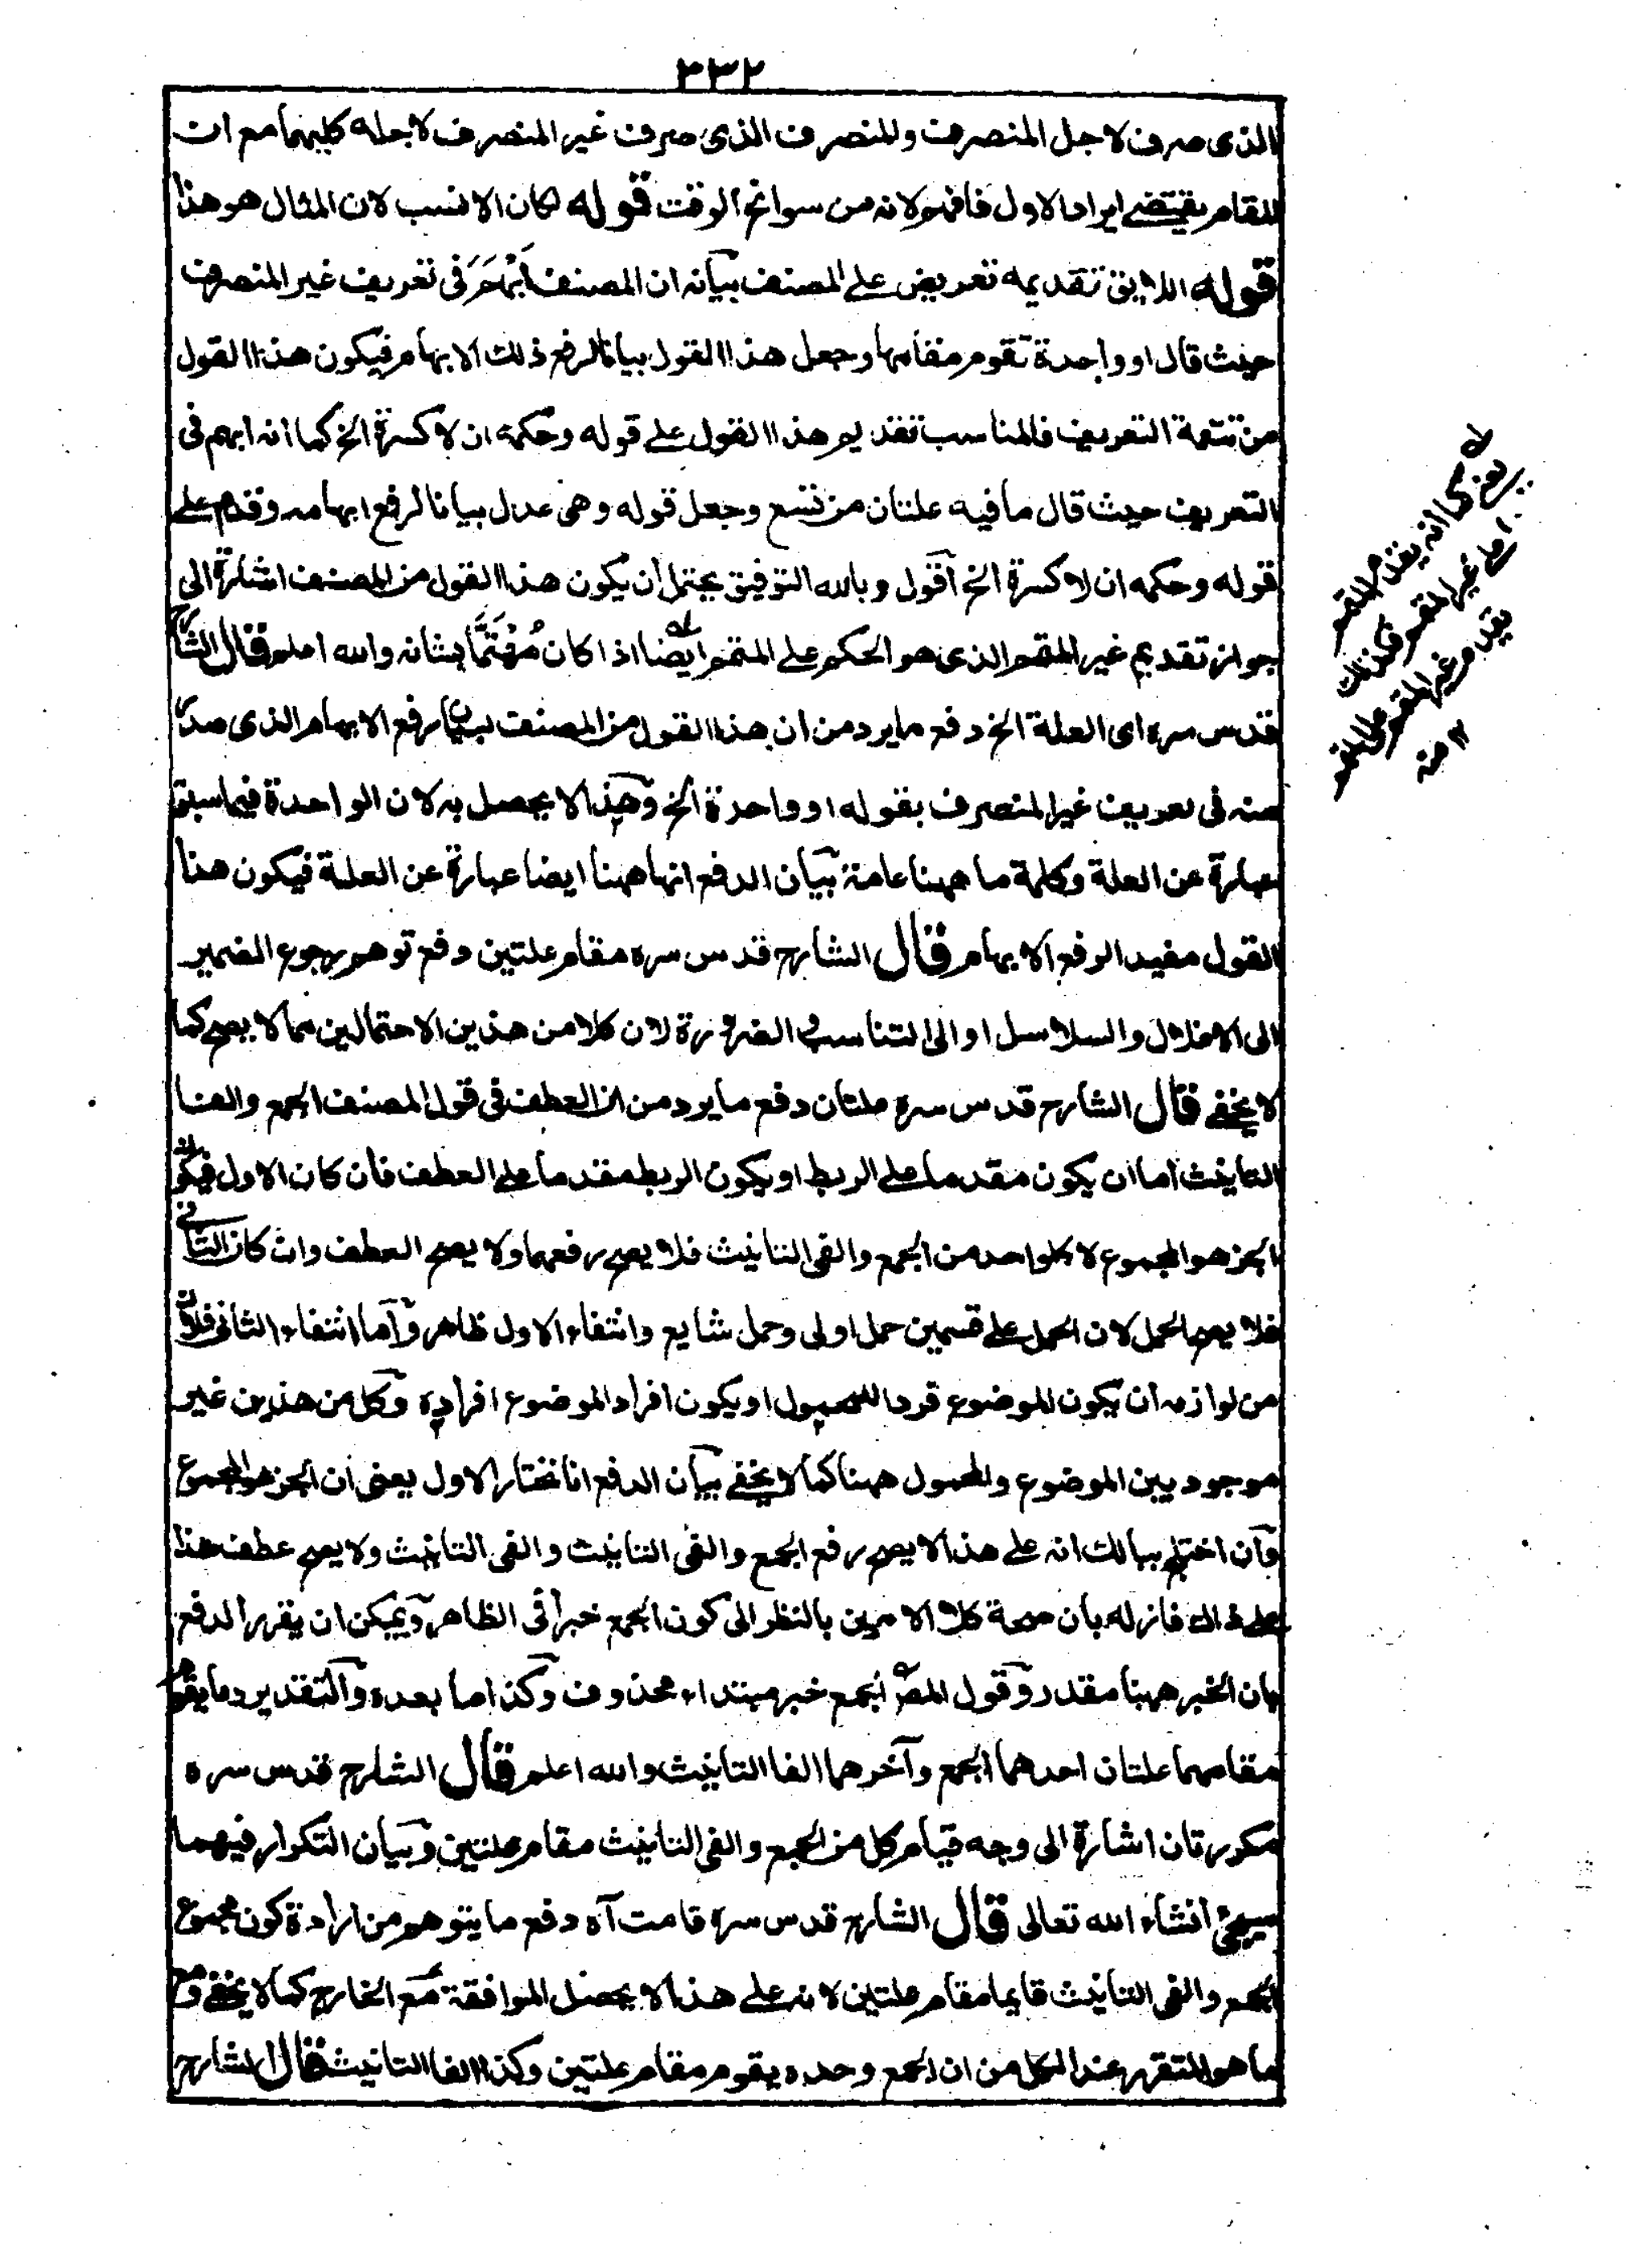 ٣٣٢
الذى صرف لاجل المنصرف والمنصرف الذى صرف غير المنصرف لاجله كليهما مع ان
المقام يقتضے ايراد الاول فافهم لانه من سوانح الوقت قوله لكان الانسب لان المثال هو هذا
قوله اللايق تقديمه تعريض علے المصنف بيانه ان المصنف اَبْهَمَ فى تعريف غير المنصرف
حيث قال او واحدة تقوم مقامها وجعل هذا القول بيانا لرفع ذلك الابهام فيكون هذا القول
من تتمة التعريف فالمناسب تقديم هذا القول علے قوله وحكمه ان لا كسرة الخ كما انه ابهم فى
التعريف حيث قال ما فيه علتان من تسع وجعل قوله وهى عدل بيانا لرفع ابهامه وقدم علے
قوله وحكمه ان لا كسرة الخ اقول وبالله التوفيق يحتمل ان يكون هذا القول من المصنف اشارة الى
جواز تقديم غير المتمم الذى هو الحكم علے المتمم ايضا اذا كان مُهْتَمًّا بشانه والله اعلم قال الشارح
قدس سره اى العلة الخ دفع ما يرد من ان هذا القول من المصنف لبيان رفع الابهام الذى صدر
منه فى تعريف غير المنصرف بقوله او واحدة الخ وهذا لا يحصل به لان الواحدة فيما سبق
عبارة عن العلة وكلمة ما ههنا عامة بيان الدفع انها ههنا ايضا عبارة عن العلة فيكون هذا
القول مفيدا لرفع الابهام قال الشارح قدس سره مقام علتين دفع توهم رجوع الضمير
الى الاغلال والسلاسل او الى التناسب والضرورة لان كلا من هذين الاحتمالين مما لا يصح كما
لا يخفے قال الشارح قدس سره علتان دفع ما يرد من ان العطف فى قول المصنف الجمع والفا
التانيث اما ان يكون مقدما علے الربط او يكون الربط مقدما علے العطف فان كان الاول فيكون
الجزء هو المجموع لا كلواحد من الجمع والفى التانيث فلا يصح رفعهما ولا يصح العطف وان كان الثانى
فلا يصح الحمل لان الحمل علے قسمين حمل اولى وحمل شايع وانتفاء الاول ظاهر واما انتفاء الثانى فلان
من لوازمه ان يكون الموضوع فردا للمحمول او يكون افراد الموضوع افراده وكل من هذين غير
موجود بين الموضوع والمحمول ههنا كما لا يخفے بيان الدفع انا نختار الاول يعنى ان الجزء هو المجموع
وان اختلج ببالك انه على هذا لا يصح رفع الجمع والفى التانيث والفى التانيث ولا يصح عطف هذا
علے ذلك فازله بان صحة كلا الامرين بالنظر الى كون الجمع خبرا فى الظاهر ويمكن ان يقرر الدفع
بان الخبر ههنا مقدر وقول المصـ الجمع خبر مبتداء محذوف وكذا ما بعده والتقدير وما يقوم
مقامهما علتان احدهما الجمع وآخرهما الفا التانيث والله اعلم قال الشارح قدس سره
مكررتان اشارة الى وجه قيام كل من الجمع والفى التانيث مقام علتين وبيان التكرار فيهما
سيجئ انشاء الله تعالى قال الشارح قدس سره قامت آه دفع ما يتوهم من ارادة كون مجموع
الجمع والفى التانيث قايما مقام علتين لانه على هذا لا يحصل الموافقة مع الخارج كما لا يخفے ومع
ما هو المتقرر عند الكل من ان الجمع وحده يقوم مقام علتين وكذا الفا التانيث قال الشارح
له
يعنى كما انه يقدم المتمم
علے غير المتمم فكذلك
يقدم غير المتمم على المتمم
١٢ منه